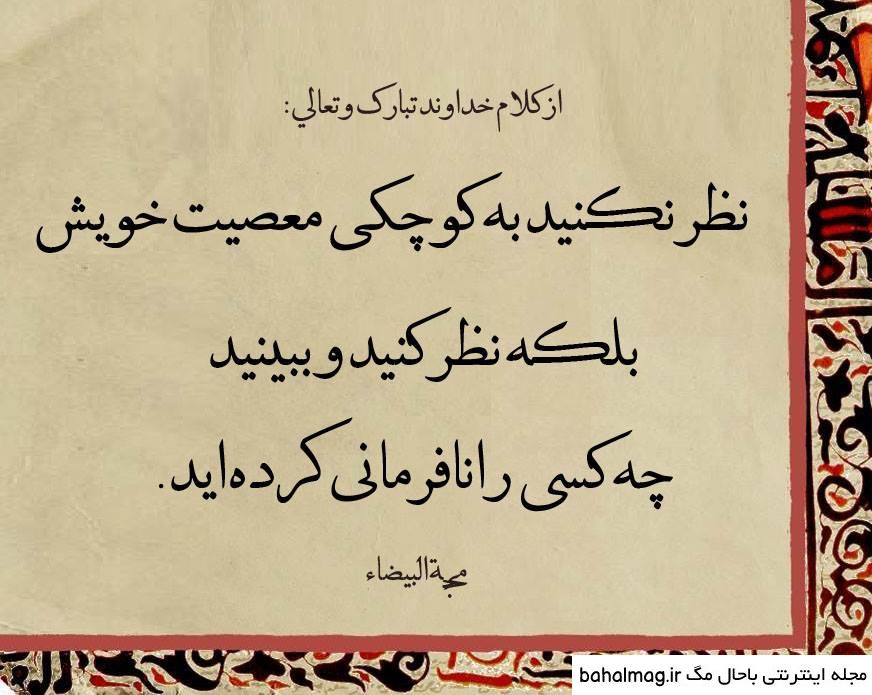 از کلام خداوند تبارک و تعالي:
نظر نکنید به کوچکی معصیت خویش
بلکه نظر کنید و ببینید
چه کسی را نافرمانی کرده‌اید.
محجة البیضاء
مجله اینترنتی باحال مگ bahalmag.ir